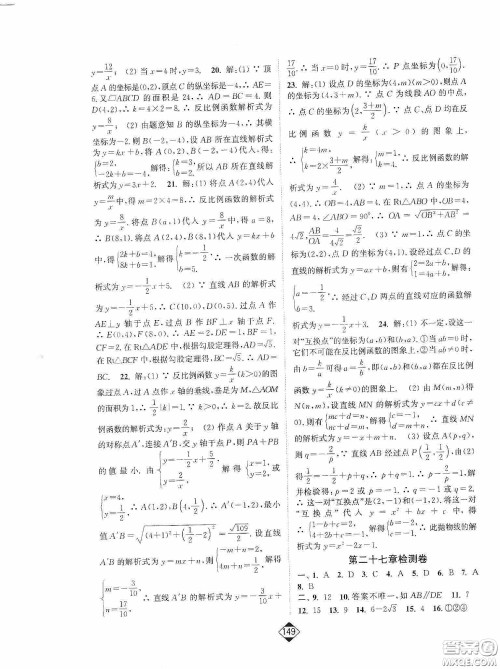 y=12/x; (2) 当 x=4 时, y=3. 20. 解: (1) ∵ 顶
点 A 的坐标是(0,2), 顶点 C 的纵坐标是-4, ∴ AE=
6. 又▱ABCD 的面积是 24, ∴ AD=BC=4, 则
D(4,2), ∴ k=4×2=8, ∴ 反比例函数解析式为
y=8/x; (2) 由题意知 B 的纵坐标为-4, ∴ 其横
坐标为-2, 则 B(-2,-4), 设 AB 所在直线解析式
为 y=kx+b, 将 A(0,2), B(-2,-4) 代入, 得:
{b=2, -2k+b=-4, 解得: {k=3, b=2, ∴ AB 所在直线的解
析式为 y=3x+2. 21. 解: (1) 将点 A(2,4) 代入
y=m/x, 得 m=2×4=8, ∴ 反比例函数的解析式为
y=8/x. 将点 B(a,1) 代入 y=8/x, 得 a=8,
∴ B(8,1). 将点 A(2,4), B(8,1) 代入 y=kx+b
中, 得 {2k+b=4, 8k+b=1, 解得 {k=-1/2, b=5, ∴ 一次函数的解析
式为 y=-1/2x+5. (2) ∵ 直线 AB 的解析式为
y=-1/2x+5, ∴ C(10,0), D(0,5). 过点 A 作
AE⊥y 轴于点 E, 过点 B 作 BF⊥x 轴于点 F,
∴ E(0,4), F(8,0), ∴ AE=2, DE=1, BF=1,
CF=2. 在 Rt△ADE 中, 根据勾股定理得, AD=√5.
在 Rt△BCF 中, 根据勾股定理得, BC=√5, ∴ AD=
BC. 22. 解: (1) ∵ 反比例函数 y=k/x(k>0) 的
图象过点 A, 过 A 点作 x 轴的垂线, 垂足为 M, △AOM
的面积为 1, ∴ 1/2|k|=1, ∵ k>0, ∴ k=2, 故反比
例函数的解析式为: y=2/x; (2) 作点 A 关于 y 轴
的对称点 A′, 连接 A′B, 交 y 轴于点 P, 则 PA+PB
的值最小. 由 {y=-1/2x+5/2, y=2/x, 解得 {x=1, y=2, 或
{x=4, y=1/2, ∴ A(1,2), B(4,1/2), ∴ A′(-1,2), 最小
值 A′B=√((4+1)²+(1/2-2)²)=√109/2. 设直线
A′B 的解析式为 y=mx+n, 则 {-m+n=2, 4m+n=1/2, 解得
{m=-3/10, n=17/10, ∴ 直线 A′B 的解析式为 y=-3/10x+
17/10, ∴ x=0 时, y=17/10, ∴ P 点坐标为(0,17/10).
23. 解: (1) 设点 D 的坐标为(4,m)(m>0), 则点 A
的坐标为(4,3+m), ∵ 点 C 为线段 AO 的中点,
∴ 点 C 的坐标为(2,(3+m)/2). ∵ 点 C、点 D 均在反
比例函数 y=k/x(x>0) 的图象上,
∴ {k=4m, k=2×(3+m)/2, 解得: {m=1, k=4, ∴ 反比例函数的解
析式为 y=4/x; (2) ∵ m=1, ∴ 点 A 的坐标为
(4,4), ∴ OB=4, AB=4. 在 Rt△ABO 中, OB=4,
AB=4, ∠ABO=90°, ∴ OA=√(OB²+AB²)=
4√2, AB/OA=4/(4√2)=√2/2; (3) 设经过点 C、D
的直线的解析式为 y=ax+b, 则有 {2=2a+b, 1=4a+b, 解得:
{a=-1/2, b=3, ∴ 经过 C、D 两点的直线对应的函数解
析式为 y=-1/2x+3. 24. 解: (1) 不一定. 设这一
对“互换点”的坐标为(a,b)和(b,a). ①当 ab=0 时,
它们不可能在反比例函数的图象上; ②当 ab≠0 时,
由 b=k/a 可得 a=k/b, 即(a,b)和(b,a)都在反比
例函数 y=k/x(k≠0)的图象上. (2) 由 M(m,n)得
N(n,m), 设直线 MN 的解析式为 y=cx+d(c≠0),
则有 {mc+d=n, nc+d=m, 解得 {c=-1, d=m+n, ∴ 直线 MN
的解析式为 y=-x+m+n. (3) 设点 A(p,q), 则
q=-2/p, ∵ 直线 AB 经过点 P(1/2,1/2), 由(2)得
1/2=-1/2+p+q, ∴ p+q=1, ∴ p-2/p=1, 解
并检验得: p=2 或 p=-1, ∴ q=-1 或 q=2,
∴ 这一对“互换点”是(2,-1)和(-1,2). 将这一对
“互换点”代入 y=x²+bx+c 中, 得
{1-b+c=2, 4+2b+c=-1, 解得 {b=-2, c=-1, ∴ 此抛物线的解
析式为 y=x²-2x-1.
第二十七章检测卷
一、1. A 2. D 3. C 4. A 5. D 6. B 7. A
8. A
二、9. 12 10. 答案不唯一, 如 AB∥DE 11. 7
12. 15 13. 9 14. 6-2√3 15. 1/4 16. ①②④
149